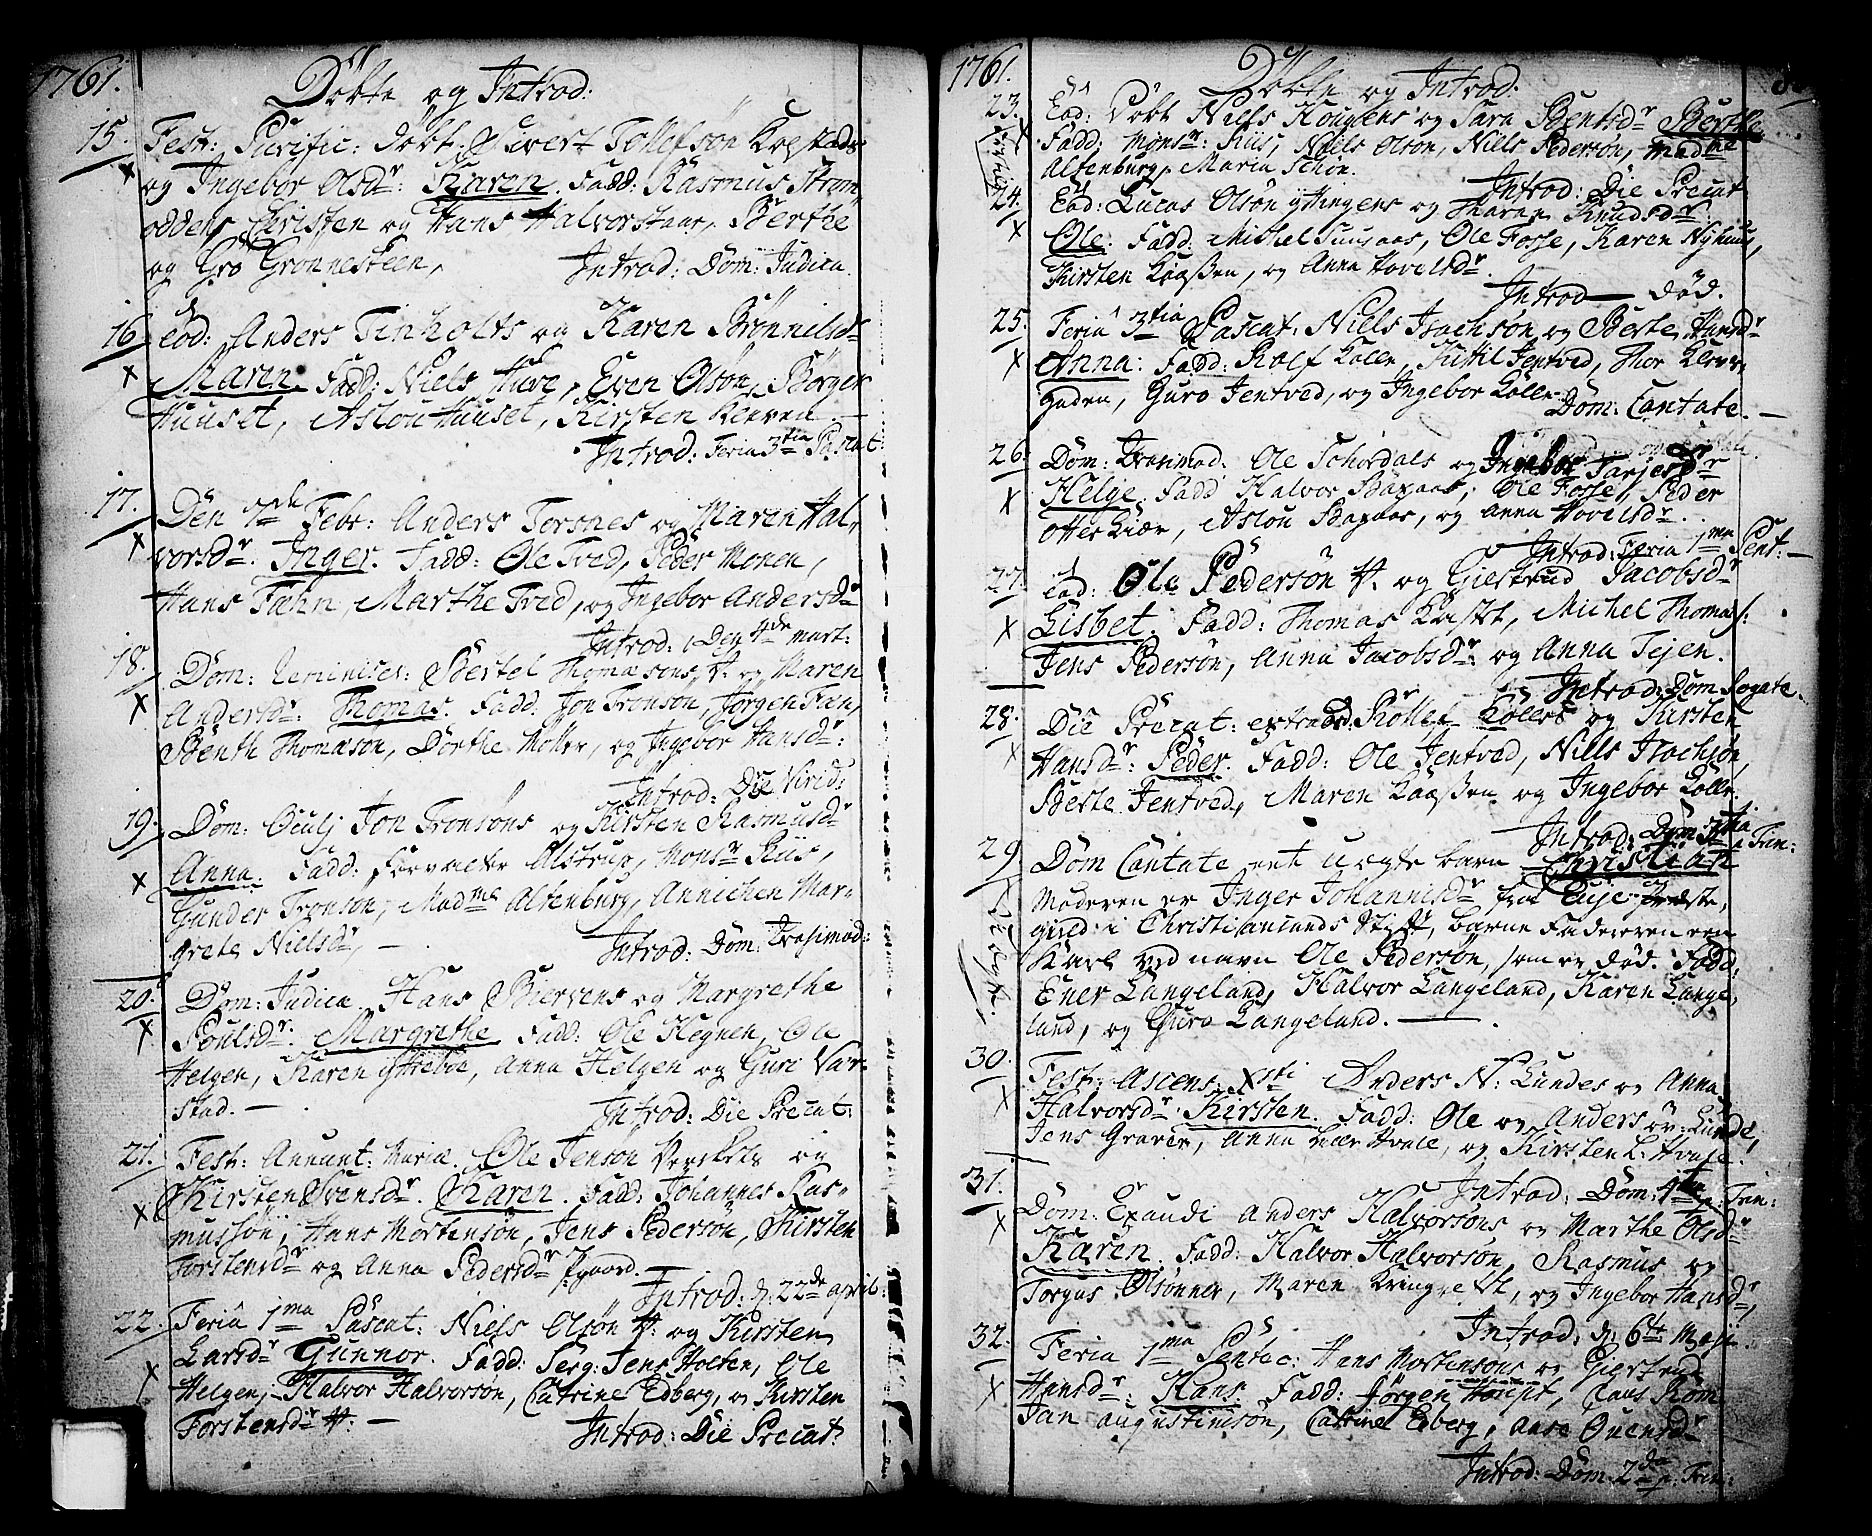 1761.
Döbte og Introd:
15. Fest: Purific: döbt. Sivert Tollefsøn
og Ingebor Olsdr: Karen. Fadd: Rasmus Strøm
oddens Christen og Hans Halvorstaar, Berthe
og Gro Grønnesteen, Introd: Dom: Judica.
16. Eod: Anders Tinholts og Karen Brønnilsdr
Maren. Fadd: Niels Hure, Even Olsøn, Børger
Huuset, Aslou Huuset, Kirsten
Introd: Feria 3tia Pascat:
17. Den 7de Febr: Anders Torsnes og Maren Hal,
vorsdr. Inger. Fadd: Ole Tved, Peder Monen,
Hans Fæhn, Marthe Tved, og Ingebor Andersdr
Introd: Den 4de Mart:
18. Dom: Reminisc: Bertel Thomasøns V. og Maren
Andersdr: Thomas. Fadd: Jon Tronsøn, Jørgen Fan,
Benth Thomasøn, Dorthe Møller, og Ingebor Hansdr:
Introd: Die Virid:
19. Dom: Oculj Jon Tronsøns og Kirsten Rasmusdr
Anna. Fadd: Forvalter Alstrup, Monsr Riis,
Gunder Tronsøn, Madme Altenburg, Annichen Mar-
grete Nielsdr, — Introd: Dom: Qvasimod:
20. Dom: Judica Hans Biervens og Margrethe
Poulsdr. Margrethe Fadd: Ole Hegnen, Ole
Helgen, Karen Strebøe, Anna Helgen og Guri Var-
stad. — Introd: Die Precat:
21. Fest: Annunt: Mariæ. Ole Jensøn og
Kirsten Svensdr. Karen. Fadd: Johannes Ras-
mussøn, Hans Mortensøn, Jens Pedersøn, Kirsten
Torstensdr og Anna Pedersdr
Introd: d. 22de april:
22. Feria 1ma Pascat: Niels Olsøn V. og Kirsten
Larsdr Gunnor. Fadd: Serg: Jens Holten, Ole
Helgen, Halvor Halvorsøn, Catrine Edberg, og Kirsten
Torstensdr V. — Introd: Die Precat:
1761.
Döbte og Introd.
23. Eod: Döbt Niels Houglens og Sara Bentsdr Berthe
Fadd: Monsr: Riis, Niels Olsøn, Niels Pedersøn, Madme
Altenburg, Maria Schøn. Introd: Die Precat
24. Eod: Lucas Olsøn og Maren Knudsdr
Ole. Fadd: Michel Suusaas, Ole Fosse, Karen Nyhuus,
Kirsten Kaaßen, og Anna Hovelsdr.
Introd — død.
25. Feria 3tia Pascat: Niels Isachsøn og Berte Hansdr
Anna: Fadd: Rolf Kolle, Kittil Jentved, Thor
Guro Jentved, og Ingebor Kolle
Dom: Cantate. —
26. Dom: Qvasimod: Ole Schordals og Ingebor Tarjersdr
Helge. Fadd Halvor Bagaas, Ole Fosse, Peder
Otterkiær, Aslou Bagaas, og Anna Hovelsdr.
Introd: Feria 1ma Pent: —
27. Eod: Ole Pedersøn V. og Giertrud Jacobsdr
Lisbet. Fadd: Thomas Kastet, Michel Thomas/:
Jens Pedersøn, Anna Jacobsdr: og Anna Tejen.
Introd: Dom Rogate.
28. Die Precat: extraord: Rollef Kollers og Kirsten
Hansdr: Peder. Fadd: Ole Jentved, Niells Isachsøn,
Berte Jentved, Maren Kaaßen og Ingebor Kolle.
Introd: Dom: 3tia Trin:
29. Dom Cantate, eet uægte barn Christian
Moderen er Inger Johannisdr fra
gield i Christiansands Stift, Barne Faderen een
Karl ved navn Ole Pedersøn, som er død. Fadd:
Ener Langeland, Halvor Langeland, Karen Lange,
land, og Guro Langeland. —
30. Fest: Ascens: Xsti Anders N: Lundes og Anna
Halvorsdr. Kirsten. Fadd: Ole og Anders øv: Lunde,
Jens Graver, Anna Hvale, og Kirsten L: Hvale.
Introd: Dom: 4ta Trin:
31. Dom: Exaudi Anders Halvorsøns og Marthe Olsdr
Karen. Fadd: Halvor Halvorsøn, Rasmus og
Torgus Olsønner, Maren Kringelt, og Ingebor Hansdr,
Introd: d: 6te Maji
32. Feria 1ma Pentec: Hans Mortensøns og Giertrud
Hansdr: Hans Fadd: Jørgen Houpt, Claus Rom
Jan Augustinsøn, Catrine Edberg, Aase Ovensdr
Introd: Dom: 2da p. Trin: